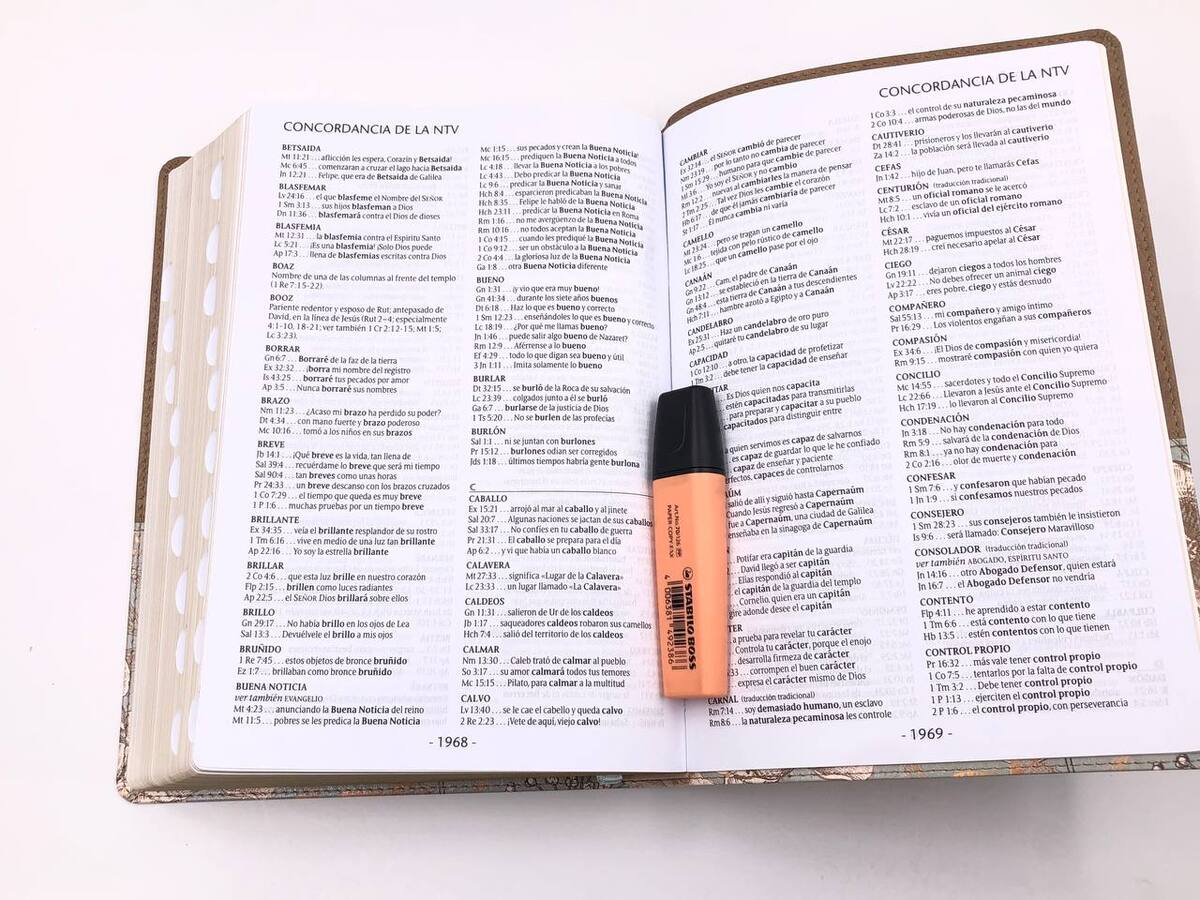 CONCORDANCIA DE LA NTV
BETSAIDA
Mt 11:21 . . . aflicción les espera, Corazín y Betsaida!
Mc 6:45 . . . comenzaran a cruzar el lago hacia Betsaida
Jn 12:21 . . . Felipe, que era de Betsaida de Galilea
BLASFEMAR
Lv 24:16 . . . el que blasfeme el Nombre del SEÑOR
1 Sm 3:13 . . . sus hijos blasfeman a Dios
Dn 11:36 . . . blasfemará contra el Dios de dioses
BLASFEMIA
Mt 12:31 . . . la blasfemia contra el Espíritu Santo
Lc 5:21 . . . ¡Es una blasfemia! ¡Solo Dios puede
Ap 17:3 . . . llena de blasfemias escritas contra Dios
BOAZ
Nombre de una de las columnas al frente del templo
(1 Re 7:15-22).
BOOZ
Pariente redentor y esposo de Rut; antepasado de
David, en la línea de Jesús (Rut 2–4; especialmente
4:1-10, 18-21; ver también 1 Cr 2:12-15; Mt 1:5;
Lc 3:23).
BORRAR
Gn 6:7 . . . Borraré de la faz de la tierra
Ex 32:32 . . . ¡borra mi nombre del registro
Is 43:25 . . . borraré tus pecados por amor
Ap 3:5 . . . Nunca borraré sus nombres
BRAZO
Nm 11:23 . . . ¿Acaso mi brazo ha perdido su poder?
Dt 4:34 . . . con mano fuerte y brazo poderoso
Mc 10:16 . . . tomó a los niños en sus brazos
BREVE
Jb 14:1 . . . ¡Qué breve es la vida, tan llena de
Sal 39:4 . . . recuérdame lo breve que será mi tiempo
Sal 90:4 . . . tan breves como unas horas
Pr 24:33 . . . un breve descanso con los brazos cruzados
1 Co 7:29 . . . el tiempo que queda es muy breve
1 P 1:6 . . . muchas pruebas por un tiempo breve
BRILLANTE
Ex 34:35 . . . veía el brillante resplandor de su rostro
1 Tm 6:16 . . . vive en medio de una luz tan brillante
Ap 22:16 . . . Yo soy la estrella brillante
BRILLAR
2 Co 4:6 . . . que esta luz brille en nuestro corazón
Flp 2:15 . . . brillen como luces radiantes
Ap 22:5 . . . el SEÑOR Dios brillará sobre ellos
BRILLO
Gn 29:17 . . . No había brillo en los ojos de Lea
Sal 13:3 . . . Devuélvele el brillo a mis ojos
BRUÑIDO
1 Re 7:45 . . . estos objetos de bronce bruñido
Ez 1:7 . . . brillaban como bronce bruñido
BUENA NOTICIA
ver también EVANGELIO
Mt 4:23 . . . anunciando la Buena Noticia del reino
Mt 11:5 . . . pobres se les predica la Buena Noticia
Mc 1:15 . . . sus pecados y crean la Buena Noticia!
Mc 16:15 . . . prediquen la Buena Noticia a todos
Lc 4:18 . . . llevar la Buena Noticia a los pobres
Lc 4:43 . . . Debo predicar la Buena Noticia
Lc 9:6 . . . predicar la Buena Noticia y sanar
Hch 8:4 . . . se esparcieron predicaban la Buena Noticia
Hch 8:35 . . . Felipe le habló de la Buena Noticia
Hch 23:11 . . . predicar la Buena Noticia en Roma
Rm 1:16 . . . no me avergüenzo de la Buena Noticia
Rm 10:16 . . . no todos aceptan la Buena Noticia
1 Co 4:15 . . . cuando les prediqué la Buena Noticia
1 Co 9:12 . . . ser un obstáculo a la Buena Noticia
2 Co 4:4 . . . la gloriosa luz de la Buena Noticia
Ga 1:8 . . . otra Buena Noticia diferente
BUENO
Gn 1:31 . . . ¡y vio que era muy bueno!
Gn 41:34 . . . durante los siete años buenos
Dt 6:18 . . . Haz lo que es bueno y correcto
1 Sm 12:23 . . . enseñándoles lo que es bueno y correcto
Lc 18:19 . . . ¿Por qué me llamas bueno?
Jn 1:46 . . . puede salir algo bueno de Nazaret?
Rm 12:9 . . . Aférrense a lo bueno
Ef 4:29 . . . todo lo que digan sea bueno y útil
3 Jn 1:11 . . . Imita solamente lo bueno
BURLAR
Dt 32:15 . . . se burló de la Roca de su salvación
Lc 23:39 . . . colgados junto a él se burló
Ga 6:7 . . . burlarse de la justicia de Dios
1 Ts 5:20 . . . No se burlen de las profecías
BURLÓN
Sal 1:1 . . . ni se juntan con burlones
Pr 15:12 . . . burlones odian ser corregidos
Jds 1:18 . . . últimos tiempos habría gente burlona
C
CABALLO
Ex 15:21 . . . arrojó al mar al caballo y al jinete
Sal 20:7 . . . Algunas naciones se jactan de sus caballos
Sal 33:17 . . . No confíes en tu caballo de guerra
Pr 21:31 . . . El caballo se prepara para el día
Ap 6:2 . . . y vi que había un caballo blanco
CALAVERA
Mt 27:33 . . . significa «Lugar de la Calavera»
Lc 23:33 . . . un lugar llamado «La Calavera»
CALDEOS
Gn 11:31 . . . salieron de Ur de los caldeos
Jb 1:17 . . . saqueadores caldeos robaron sus camellos
Hch 7:4 . . . salió del territorio de los caldeos
CALMAR
Nm 13:30 . . . Caleb trató de calmar al pueblo
So 3:17 . . . su amor calmará todos tus temores
Mc 15:15 . . . Pilato, para calmar a la multitud
CALVO
Lv 13:40 . . . se le cae el cabello y queda calvo
2 Re 2:23 . . . ¡Vete de aquí, viejo calvo!
- 1968 -
CONCORDANCIA DE LA NTV
CAMBIAR
Ex 32:14 . . . el SEÑOR cambió de parecer
Nm 23:19 . . . por lo tanto no cambia de parecer
1 Sm 15:29 . . . humano para que cambie de parecer
Ml 3:6 . . . Yo soy el SEÑOR y no cambio
Rm 12:2 . . . nuevas al cambiarles la manera de pensar
2 Tm 2:25 . . . Tal vez Dios les cambie el corazón
Hb 6:17 . . . de que él jamás cambiaría de parecer
St 1:17 . . . Él nunca cambia ni varía
CAMELLO
Mt 23:24 . . . pero se tragan un camello
Mc 1:6 . . . tejida con pelo rústico de camello
Lc 18:25 . . . que un camello pase por el ojo
CANAÁN
Gn 9:22 . . . Cam, el padre de Canaán
Gn 13:12 . . . se estableció en la tierra de Canaán
Gn 48:4 . . . esta tierra de Canaán a tus descendientes
Hch 7:11 . . . hambre azotó a Egipto y a Canaán
CANDELABRO
Ex 25:31 . . . Haz un candelabro de oro puro
Ap 2:5 . . . quitaré tu candelabro de su lugar
CAPACIDAD
1 Co 12:10 . . . a otro, la capacidad de profetizar
1 Tm 3:2 . . . debe tener la capacidad de enseñar
TAR
. . . Es Dios quien nos capacita
estén capacitadas para transmitirlas
para preparar y capacitar a su pueblo
capacitados para distinguir entre
a quien servimos es capaz de salvarnos
capaz de guardar lo que le he confiado
capaz de enseñar y paciente
perfectos, capaces de controlarnos
AÚM
salió de allí y siguió hasta Capernaúm
Cuando Jesús regresó a Capernaúm
fue a Capernaúm, una ciudad de Galilea
enseñaba en la sinagoga de Capernaúm
Potifar era capitán de la guardia
David llegó a ser capitán
Elías respondió al capitán
el capitán de la guardia del templo
Cornelio, quien era un capitán
gire adonde desee el capitán
TER
a prueba para revelar tu carácter
Controla tu carácter, porque el enojo
desarrolla firmeza de carácter
:33 . . . corrompen el buen carácter
expresa el carácter mismo de Dios
CARNAL (traducción tradicional)
Rm 7:14 . . . soy demasiado humano, un esclavo
Rm 8:6 . . . la naturaleza pecaminosa les controle
1 Co 3:3 . . . el control de su naturaleza pecaminosa
2 Co 10:4 . . . armas poderosas de Dios, no las del mundo
CAUTIVERIO
Dt 28:41 . . . prisioneros y los llevarán al cautiverio
Za 14:2 . . . la población será llevada al cautiverio
CEFAS
Jn 1:42 . . . hijo de Juan, pero te llamarás Cefas
CENTURIÓN (traducción tradicional)
Mt 8:5 . . . un oficial romano se le acercó
Lc 7:2 . . . esclavo de un oficial romano
Hch 10:1 . . . vivía un oficial del ejército romano
CÉSAR
Mt 22:17 . . . paguemos impuestos al César
Hch 28:19 . . . creí necesario apelar al César
CIEGO
Gn 19:11 . . . dejaron ciegos a todos los hombres
Lv 22:22 . . . No debes ofrecer un animal ciego
Ap 3:17 . . . eres pobre, ciego y estás desnudo
COMPAÑERO
Sal 55:13 . . . mi compañero y amigo íntimo
Pr 16:29 . . . Los violentos engañan a sus compañeros
COMPASIÓN
Ex 34:6 . . . ¡El Dios de compasión y misericordia!
Rm 9:15 . . . mostraré compasión con quien yo quiera
CONCILIO
Mc 14:55 . . . sacerdotes y todo el Concilio Supremo
Lc 22:66 . . . Llevaron a Jesús ante el Concilio Supremo
Hch 17:19 . . . lo llevaron al Concilio Supremo
CONDENACIÓN
Jn 3:18 . . . No hay condenación para todo
Rm 5:9 . . . salvará de la condenación de Dios
Rm 8:1 . . . ya no hay condenación para
2 Co 2:16 . . . olor de muerte y condenación
CONFESAR
1 Sm 7:6 . . . y confesaron que habían pecado
1 Jn 1:9 . . . si confesamos nuestros pecados
CONSEJERO
1 Sm 28:23 . . . sus consejeros también le insistieron
Is 9:6 . . . será llamado: Consejero Maravilloso
CONSOLADOR (traducción tradicional)
ver también ABOGADO, ESPÍRITU SANTO
Jn 14:16 . . . otro Abogado Defensor, quien estará
Jn 16:7 . . . el Abogado Defensor no vendría
CONTENTO
Flp 4:11 . . . he aprendido a estar contento
1 Tm 6:6 . . . está contento con lo que tiene
Hb 13:5 . . . estén contentos con lo que tienen
CONTROL PROPIO
Pr 16:32 . . . más vale tener control propio
1 Co 7:5 . . . tentarlos por la falta de control propio
1 Tm 3:2 . . . Debe tener control propio
1 P 1:13 . . . ejerciten el control propio
2 P 1:6 . . . el control propio, con perseverancia
- 1969 -
Art.No. 70/126
PAPER COPY FAX
STABILO BOSS
4 006381 492386